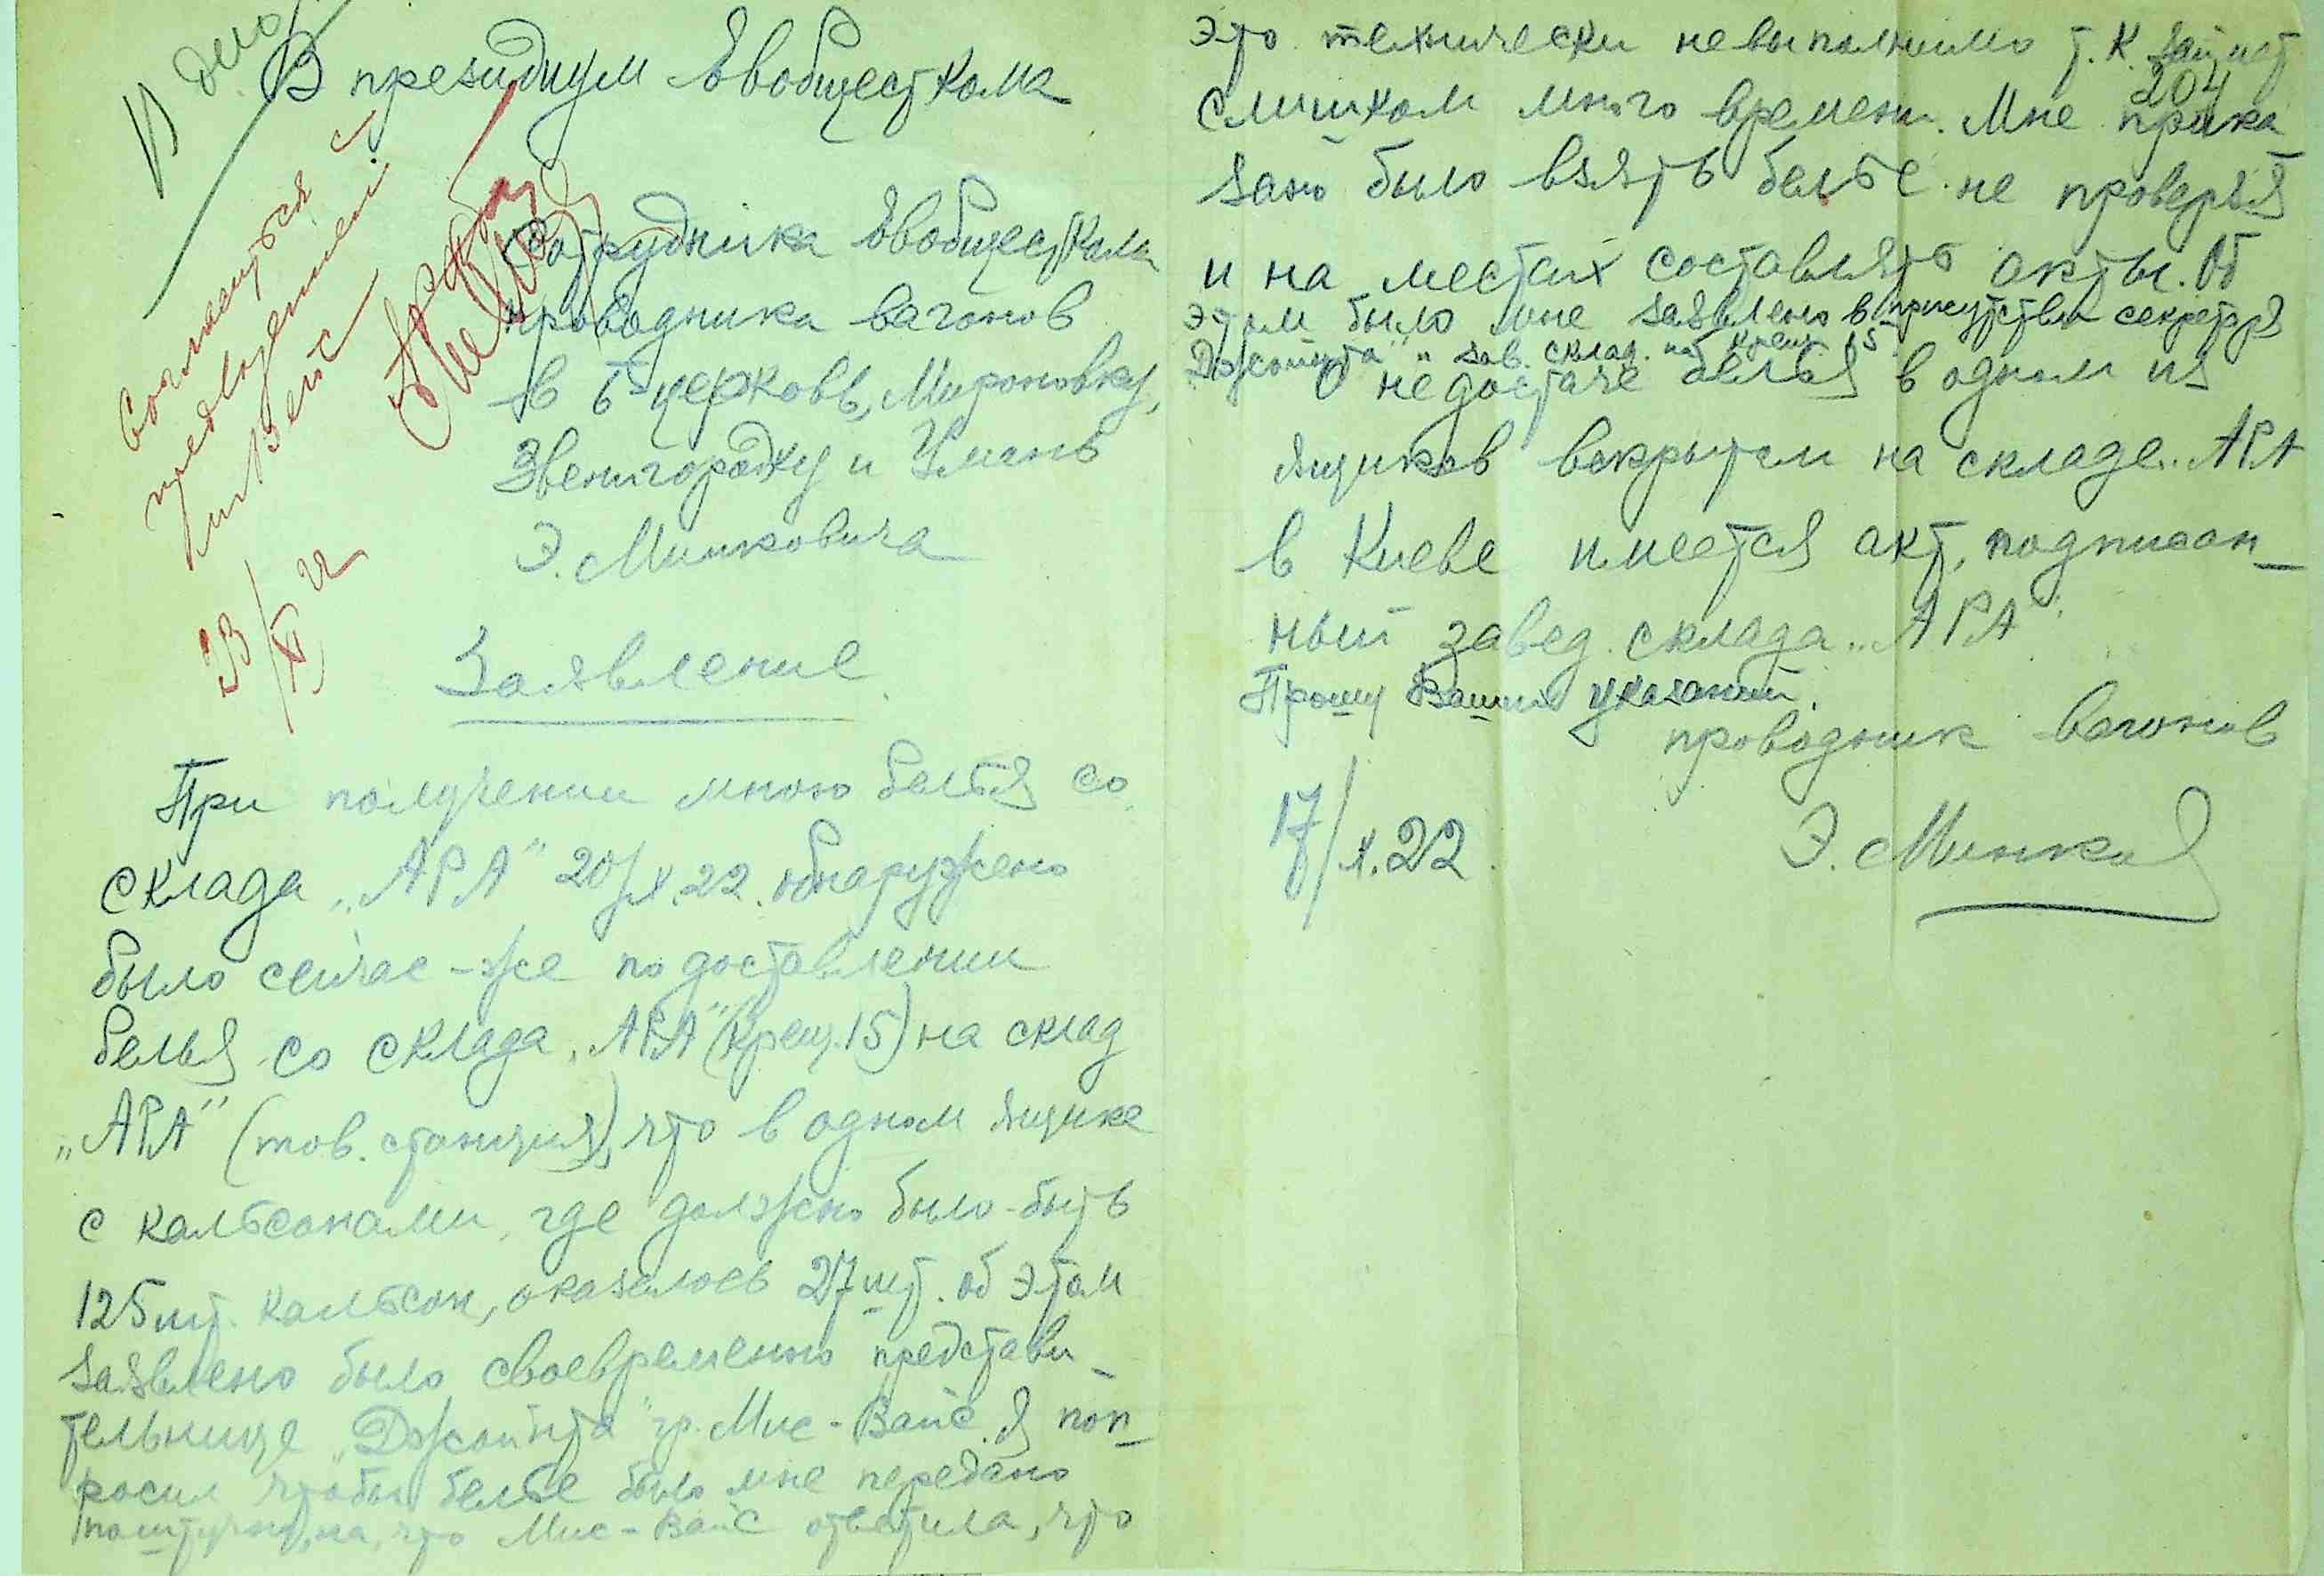 В дело
В президиум Евобщесткома
Согласиться с
предложением
мис Вейс
23/XI 22
Сотрудника Евобщесткома
проводника вагонов
в Б-церковь, Мироновку,
Звенигородку и Умань
Э. Минковича
Заявление
При получении мною белья со
склада „АРА" 20/X.22. обнаружено
было сейчас-же по доставлении
белья со склада „АРА" (Крещ. 15) на склад
„АРА" (тов. станция), что в одном ящике
с кальсонами, где должно было быть
125 шт. кальсон, оказалось 27 шт. об этом
заявлено было своевременно представи-
тельнице „Джойнта" гр. Мис-Вайс. Я поп-
росил чтобы белье было мне передано
поштучно, на что Мис-Вайс ответила, что
это технически невыполнимо т.к. займет
204
слишком много времени. Мне прика-
зано было взять белье не проверяя
и на местах составлять акты. Об
этом было мне заявлено в присутствии секретаря
„Джойнта" и зав. склад. на Крещ. 15.
О недостаче белья в одном из
ящиков вскрытом на складе „АРА
в Киеве имеется акт, подписан-
ный завед. склада „АРА"
Прошу Ваших указаний.
проводник вагонов
17/X.22. Э. Минков